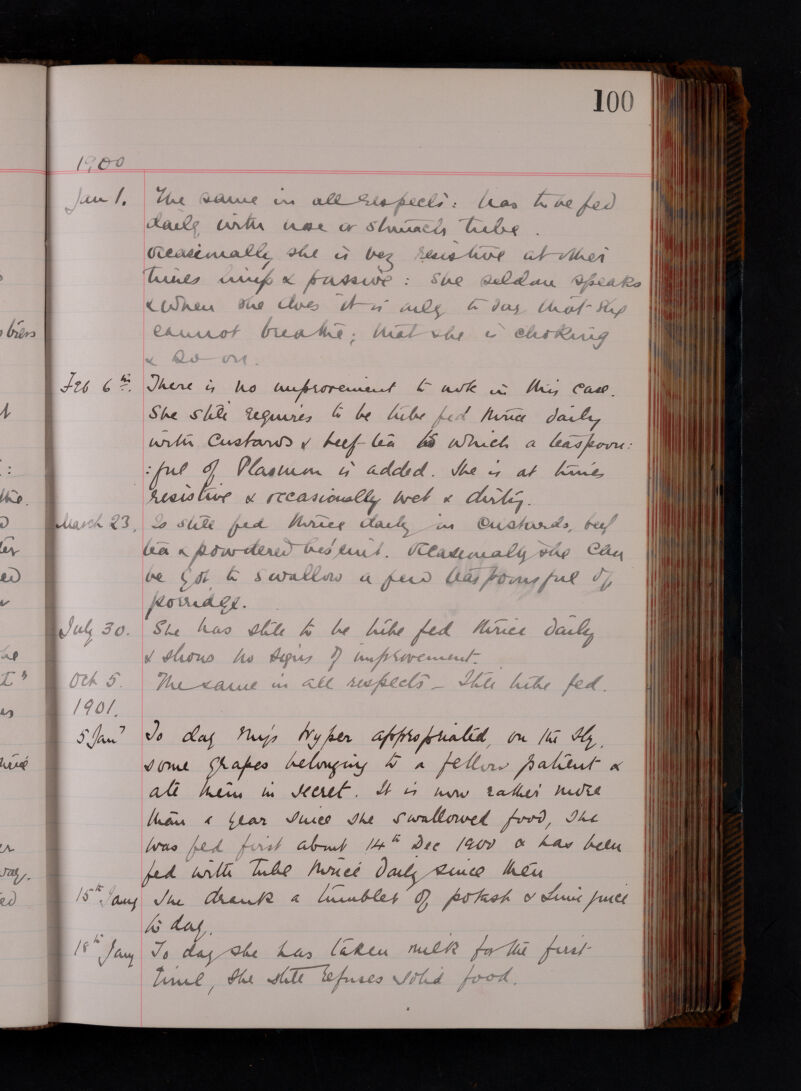 100
1900
Jan 1. The same in all respects: has to be fed
daily with nose or stomach tube.
Occasionally she is very resistive at other
times limp & passive: She seldom speaks
& when she does it is only to say that she
cannot breathe; that she is choking
& so on.
Feb 6th. There is no improvement to note in this case.
She still requires to be tube fed thrice daily
with custards & beef-tea to which a teaspoon:
:ful of Plasmon is added. She is at times
resistive & occasionally wet & dirty.
March 23. Is still fed thrice daily in custards, beef
tea & powdered biscuit. Occasionally she can
be got to swallow a few teaspoonsful of
porridge.
July 30. She has still to be tube fed thrice daily
& shows no signs of improvement.
Oct 5. The same in all respects – Still tube fed.
1901.
5 Jany To day Miss appropriated, on the sly,
some grapes belonging to a fellow patient &
ate them in secret. It is now rather more
than a year since she swallowed food, she
was fed first about 14th Dec 1900 & has been
fed with tube thrice daily since then
15th Jany She drank a tumbler of potash & Lime juice
to day.
18th Jany To day she has taken milk for the first
time, she still refuses solid food.